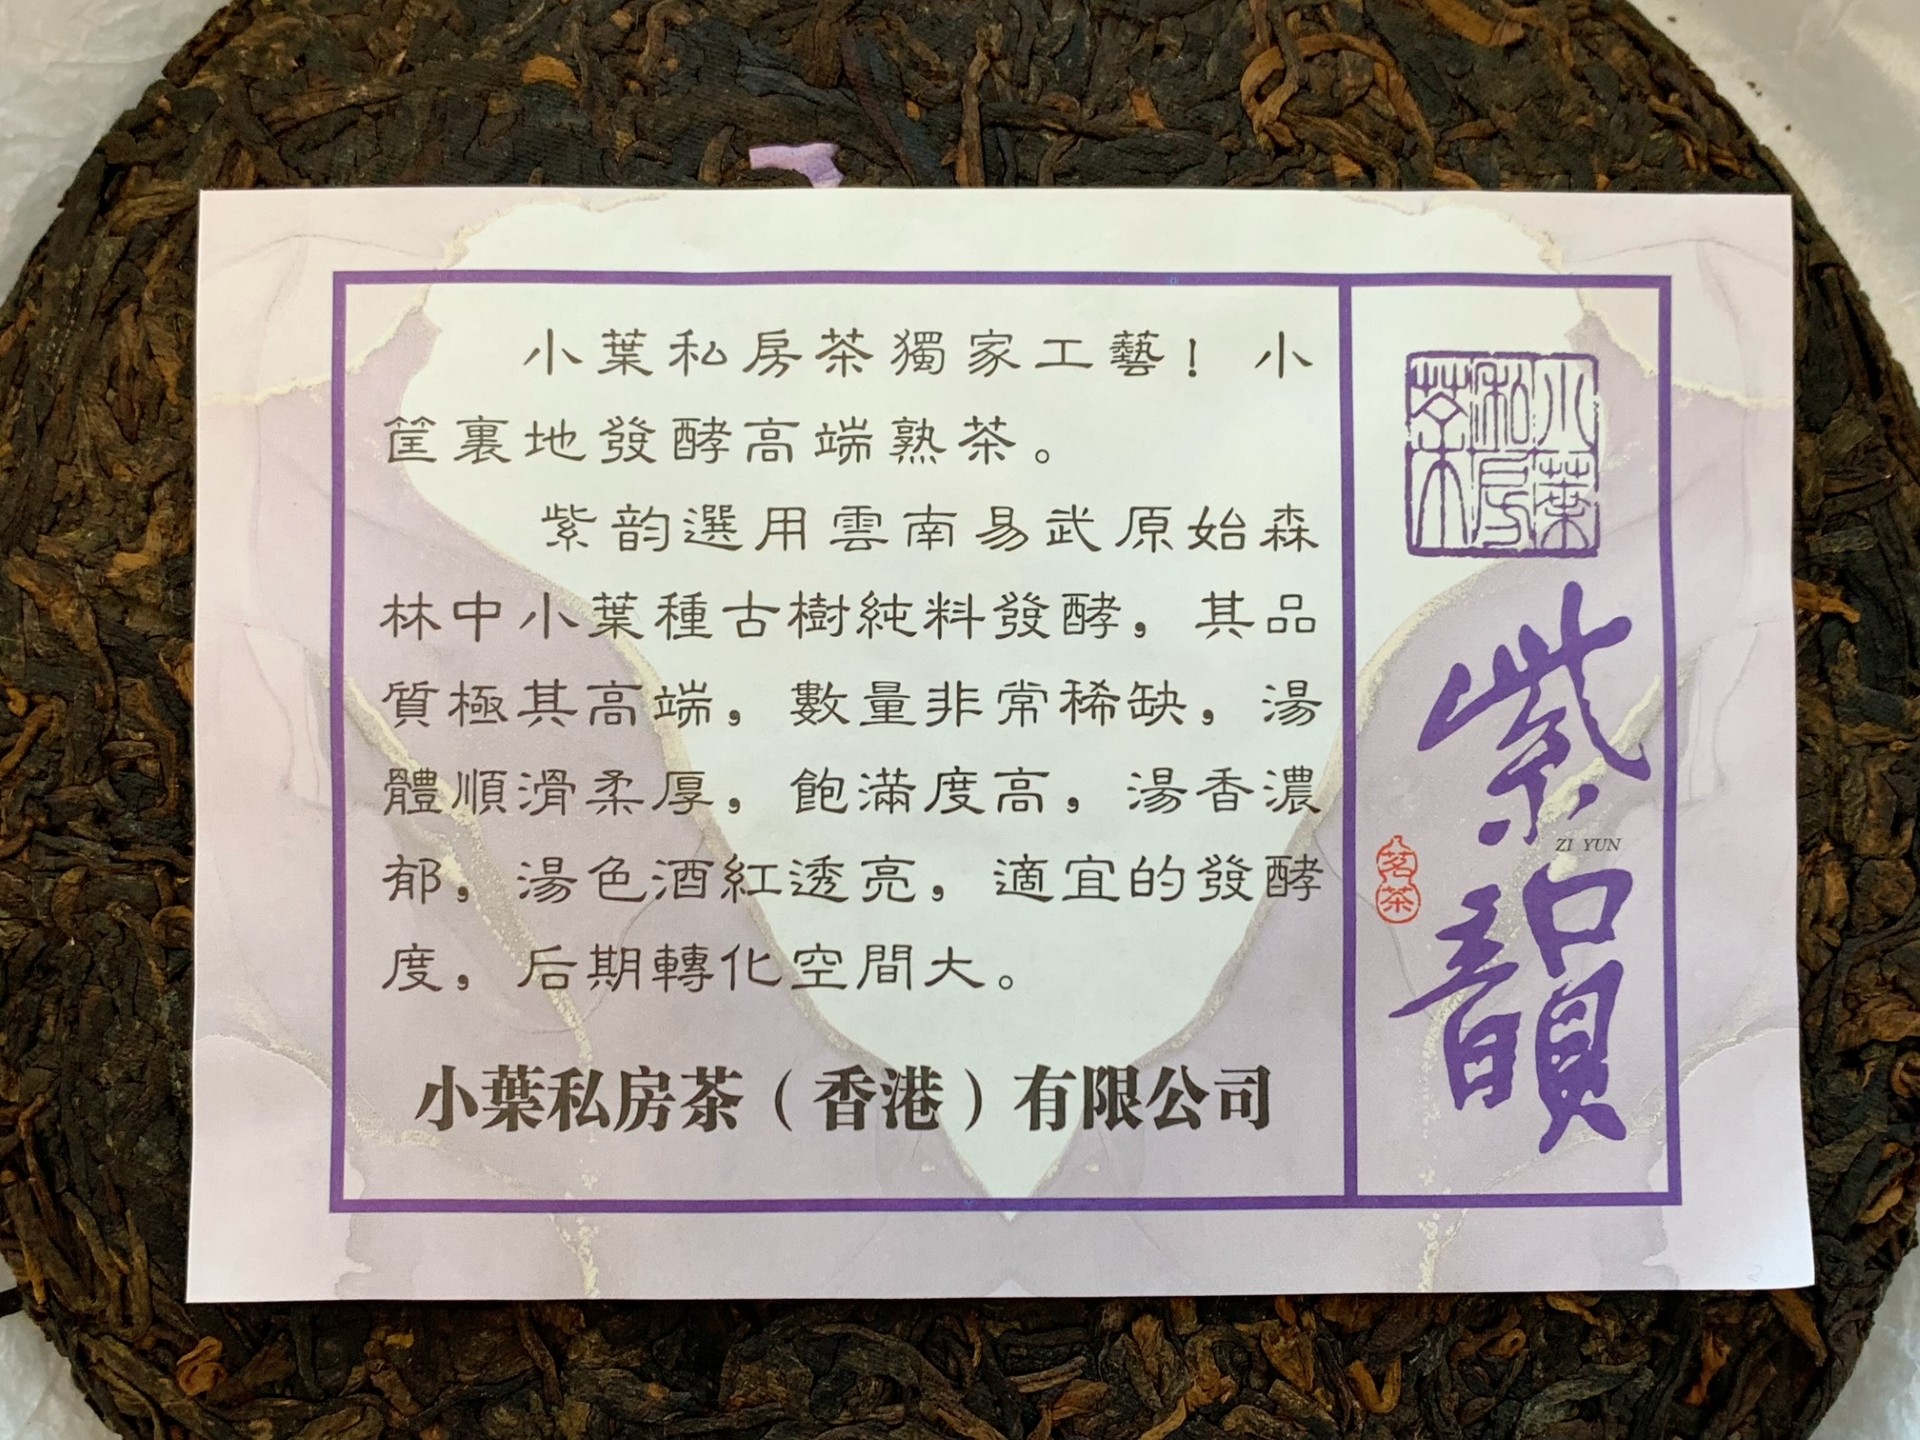 小葉私房茶獨家工藝！小
筐裏地發酵高端熟茶。
紫韵選用雲南易武原始森
林中小葉種古樹純料發酵，其品
質極其高端，數量非常稀缺，湯
體順滑柔厚，飽滿度高，湯香濃
郁，湯色酒紅透亮，適宜的發酵
度，后期轉化空間大。
小葉私房茶（香港）有限公司
小葉
私房
茗茶
紫韻
ZI YUN
茗茶